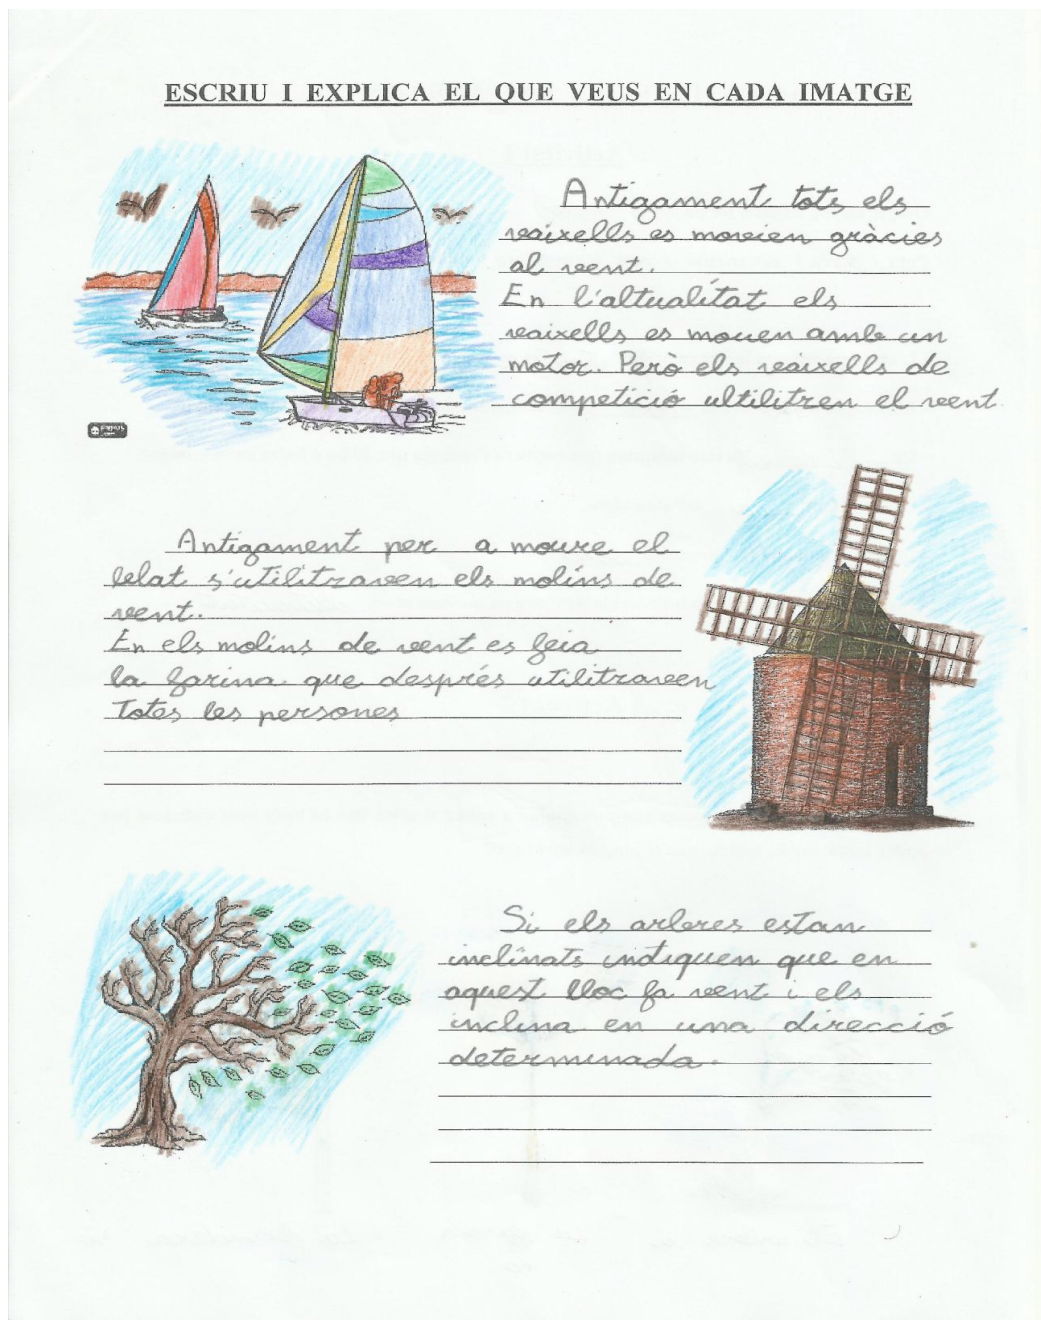 ESCRIU I EXPLICA EL QUE VEUS EN CADA IMATGE
Antigament tots els
vaixells es movien gràcies
al vent.
En l'altualitat els
vaixells es mouen amb un
motor. Però els vaixells de
competició ultilitzen el vent
Antigament per a moure el
blat s'utilitzaven els molins de
vent.
En els molins de vent es feia
la farina que després utilitzaven
Totes les persones
Si els arbres estan
inclinats indiquen que en
aquest lloc fa vent i els
inclina en una direcció
determinada.